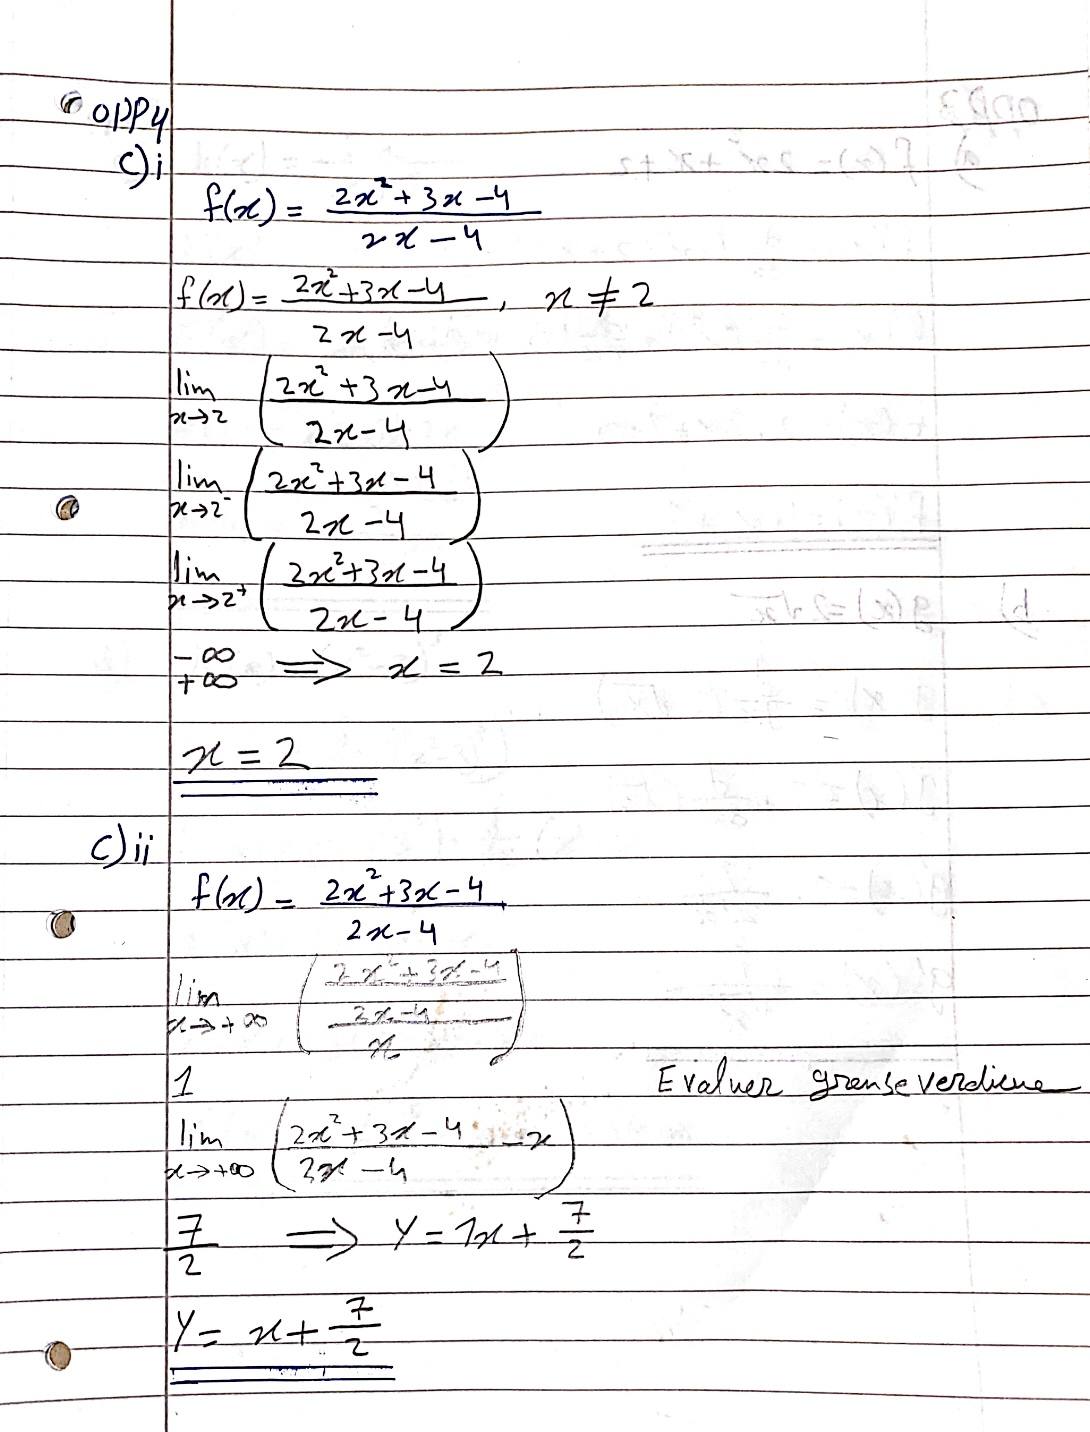 OPP4
c) i
f(x) = (2x² + 3x - 4) / (2x - 4)
f(x) = (2x² + 3x - 4) / (2x - 4), x ≠ 2
lim x→2 ((2x² + 3x - 4) / (2x - 4))
lim x→2⁻ ((2x² + 3x - 4) / (2x - 4))
lim x→2⁺ ((2x² + 3x - 4) / (2x - 4))
-∞
+∞ ⟹ x = 2
x = 2
c) ii
f(x) = (2x² + 3x - 4) / (2x - 4)
lim x→+∞ (((2x² + 3x - 4) / (2x - 4)) / x)
1 Evaluer grenseverdiene
lim x→+∞ ((2x² + 3x - 4) / (2x - 4) - x)
7/2 ⟹ Y = 1x + 7/2
Y = x + 7/2